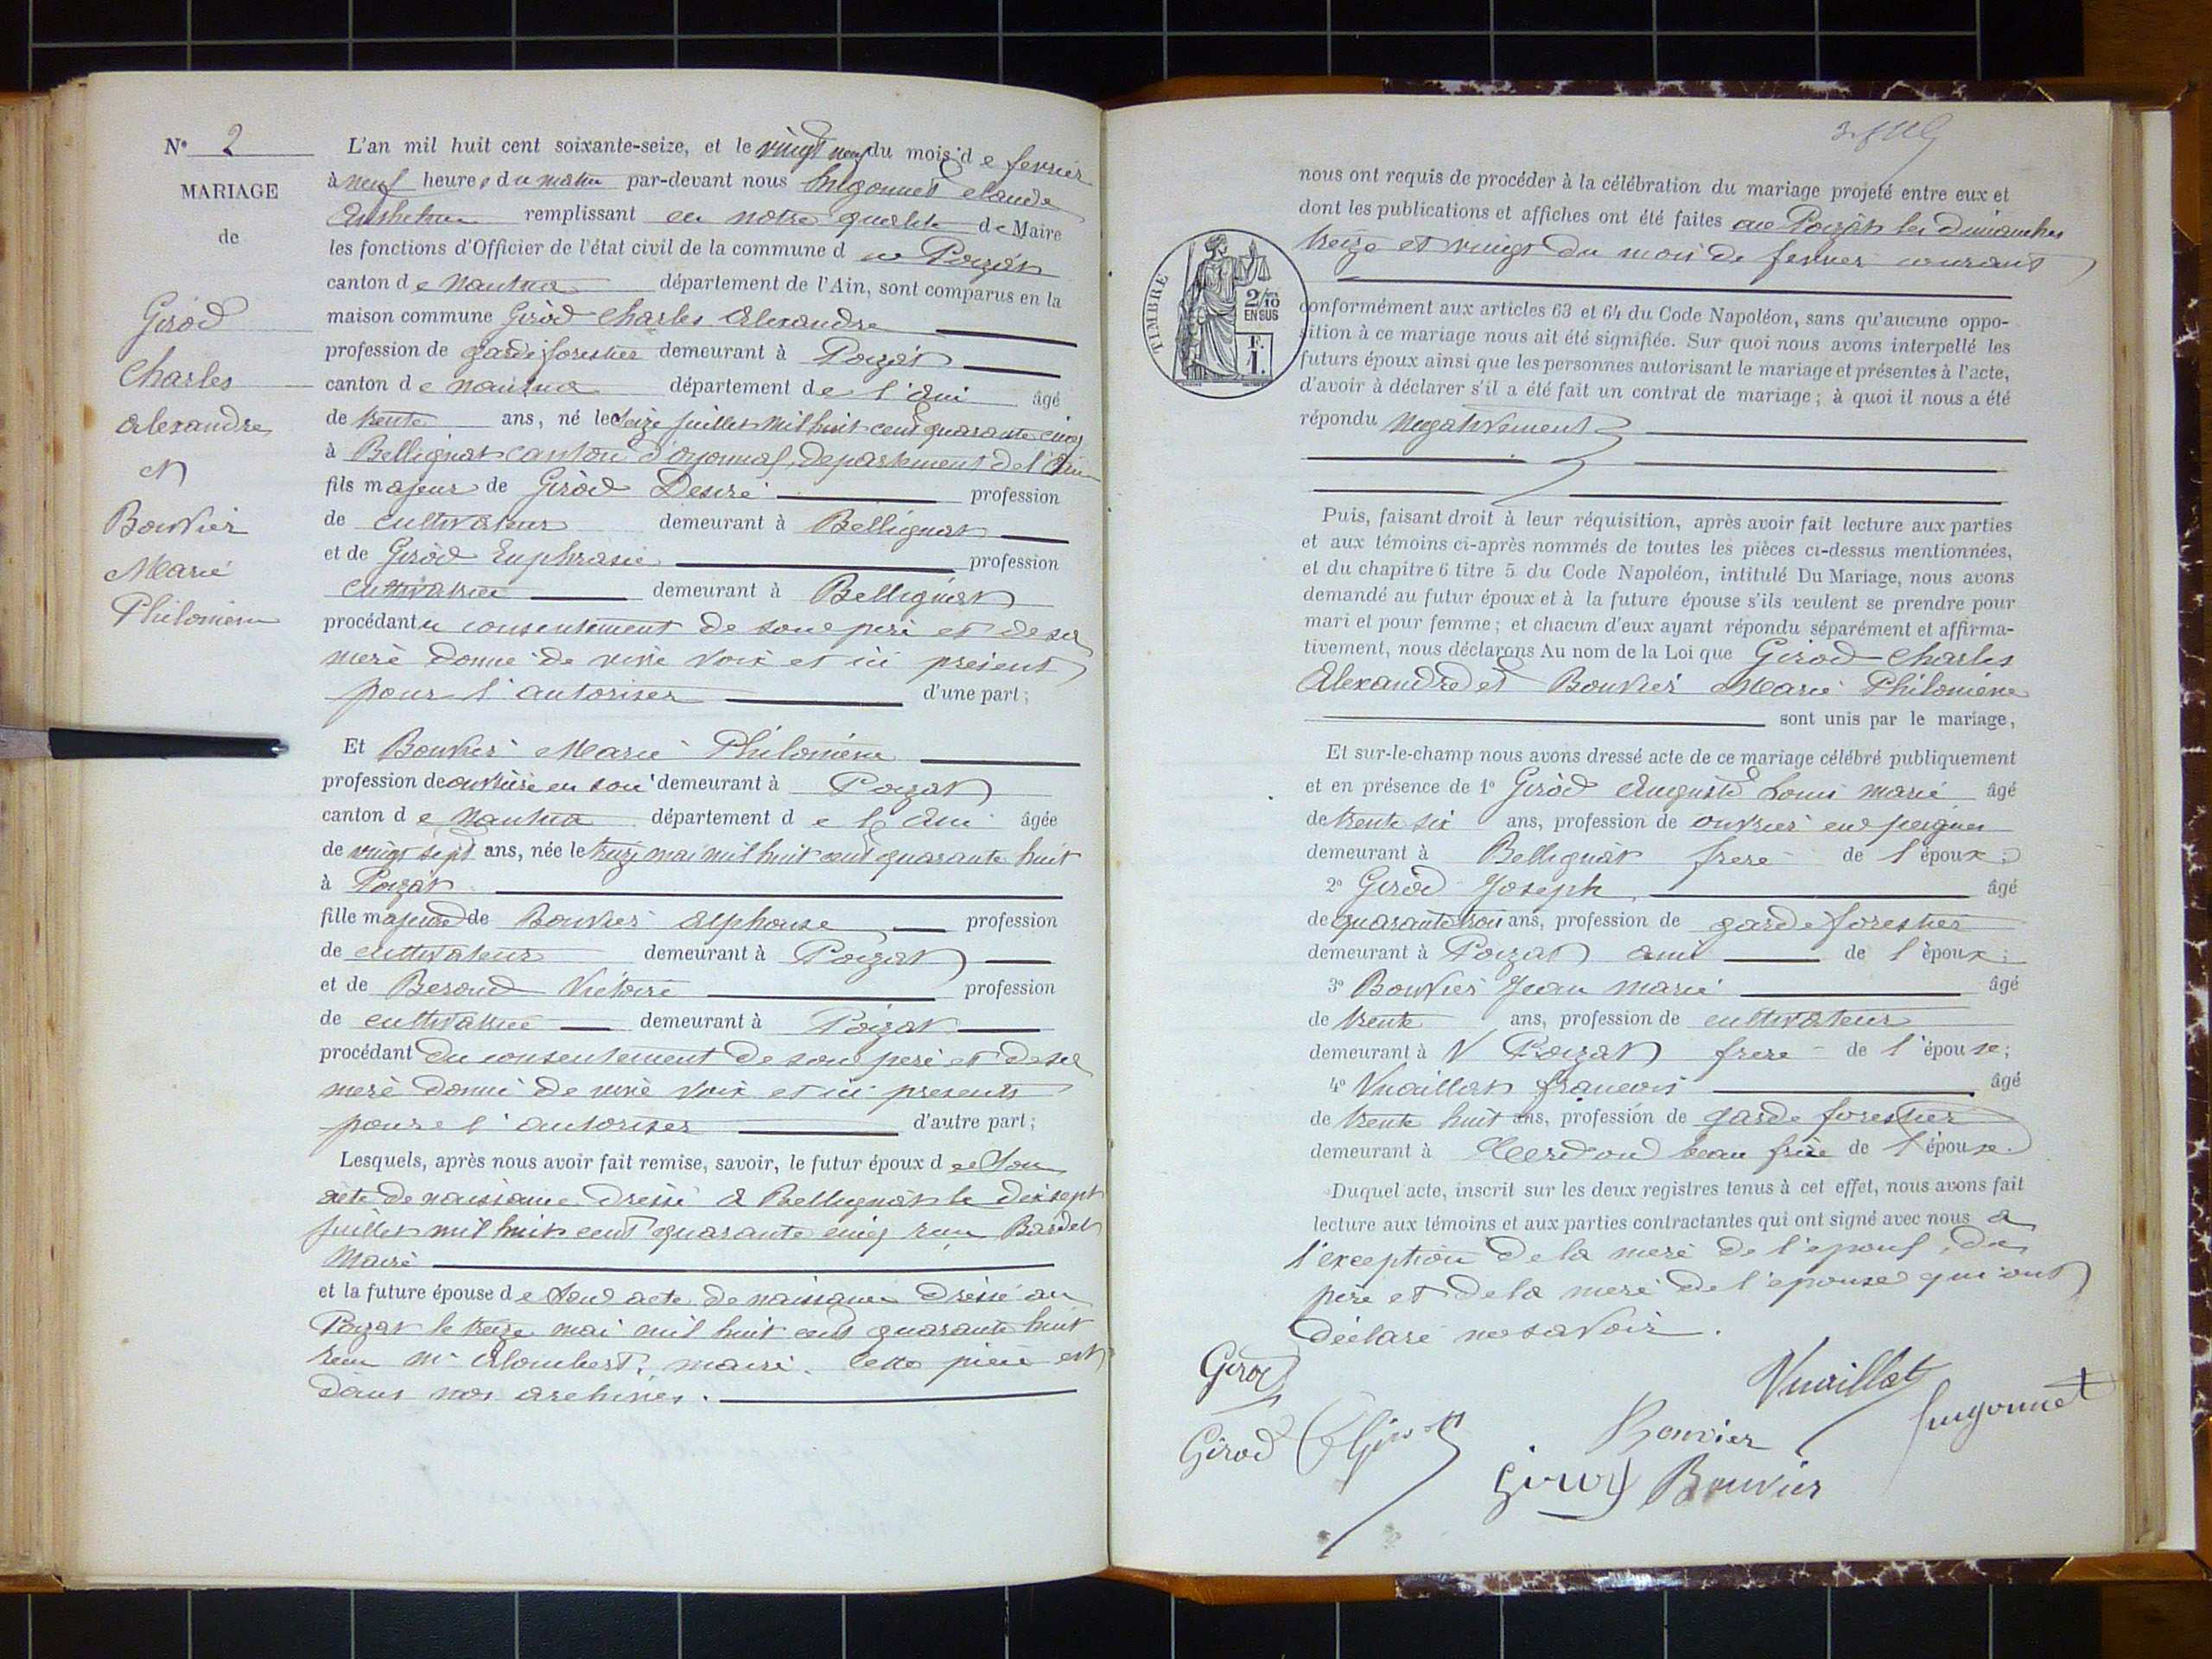 N° 2
MARIAGE
de
Girod
Charles
Alexandre
et
Bouvier
Marie
Philomène
L'an mil huit cent soixante-seize, et le vingt neuf du mois d e fevrier
à neuf heures du matin par-devant nous Jugonnet Claude
remplissant en notre qualité de Maire
les fonctions d'Officier de l'état civil de la commune d u Poizat
canton d e Nantua département de l'Ain, sont comparus en la
maison commune Girod Charles Alexandre
profession de garde forestier demeurant à Poizat
canton d e Nantua département de l'Ain âgé
de trente ans, né le seize juillet mil huit cent quarante cinq
à Bellignat canton d'Oyonnax, département de l'Ain
fils majeur de Girod Desiré profession
de cultivateur demeurant à Bellignat
et de Girod Euphrasie profession
cultivatrice demeurant à Bellignat
procédant du consentement de son père et de sa
mere donné de vive voix et ici présents
pour l'autoriser d'une part;
Et Bouvier Marie Philomène
profession de ouvrière en soie demeurant à Poizat
canton d e Nantua département d e l'Ain âgée
de vingt sept ans, née le treize mai mil huit cent quarante huit
à Poizat
fille majeure de Bouvier Alphonse profession
de cultivateur demeurant à Poizat
et de Beroud Victoire profession
de cultivatrice demeurant à Poizat
procédant du consentement de son père et de sa
mere donné de vive voix et ici presents
pour l'autoriser d'autre part;
Lesquels, après nous avoir fait remise, savoir, le futur époux d e son
acte de naissance dressé à Bellignat le dix sept
juillet mil huit cent quarante cinq reçu Bardet
Maire
et la future épouse d e son acte de naissance dressé au
Poizat le treize mai mil huit cent quarante huit
recu Mr Alombert, maire. Cette pièce est
dans nos archives.
nous ont requis de procéder à la célébration du mariage projeté entre eux et
dont les publications et affiches ont été faites au Poizat les dimanches
treize et vingt du mois de fevrier courant
TIMBRE
2/10 EN SUS
F. 1.
conformément aux articles 63 et 64 du Code Napoléon, sans qu'aucune oppo-
sition à ce mariage nous ait été signifiée. Sur quoi nous avons interpellé les
futurs époux ainsi que les personnes autorisant le mariage et présentes à l'acte,
d'avoir à déclarer s'il a été fait un contrat de mariage; à quoi il nous a été
répondu negativement
Puis, faisant droit à leur réquisition, après avoir fait lecture aux parties
et aux témoins ci-après nommés de toutes les pièces ci-dessus mentionnées,
et du chapitre 6 titre 5 du Code Napoléon, intitulé Du Mariage, nous avons
demandé au futur époux et à la future épouse s'ils veulent se prendre pour
mari et pour femme; et chacun d'eux ayant répondu séparément et affirma-
tivement, nous déclarons Au nom de la Loi que Girod Charles
Alexandre et Bouvier Marie Philomène
sont unis par le mariage,
Et sur-le-champ nous avons dressé acte de ce mariage célébré publiquement
et en présence de 1° Girod Auguste Louis Marie âgé
de trente six ans, profession de ouvrier en peignes
demeurant à Bellignat frere de l'époux;
2° Girod Joseph âgé
de quarante trois ans, profession de garde forestier
demeurant à Poizat ami de l'époux;
3° Bouvier Jean Marie âgé
de trente ans, profession de cultivateur
demeurant à Poizat frere de l'épouse;
4° Vuaillat francois âgé
de trente huit ans, profession de garde forestier
demeurant à beau frère de l'épouse.
Duquel acte, inscrit sur les deux registres tenus à cet effet, nous avons fait
lecture aux témoins et aux parties contractantes qui ont signé avec nous a
l'exception de la mere de l'epoux, du
père et de la mere de l'epouse qui ont
déclaré ne savoir.
Girod
Vuaillat
Jugonnet
Girod
Girod
Bouvier
Girod
Bouvier